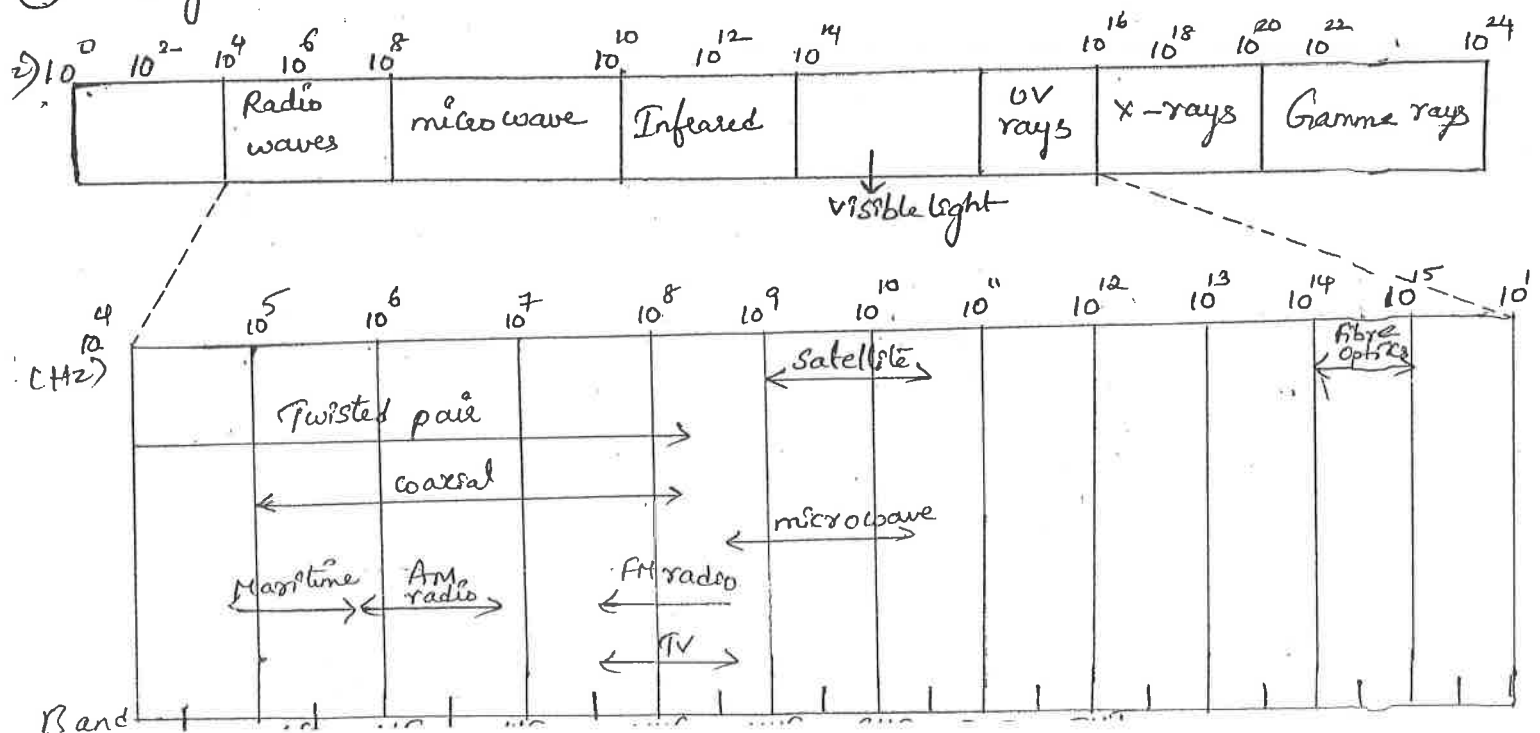 10⁰ 10² 10⁴ 10⁶ 10⁸ 10¹⁰ 10¹² 10¹⁴ 10¹⁶ 10¹⁸ 10²⁰ 10²² 10²⁴
Radio waves microwave Infrared UV rays X-rays Gamma rays
visible light
10⁴ 10⁵ 10⁶ 10⁷ 10⁸ 10⁹ 10¹⁰ 10¹¹ 10¹² 10¹³ 10¹⁴ 10¹⁵ 10¹
(Hz)
Satellite Fibre Optics
Twisted pair
coaxial
microwave
Maritime AM radio FM radio
TV
Band